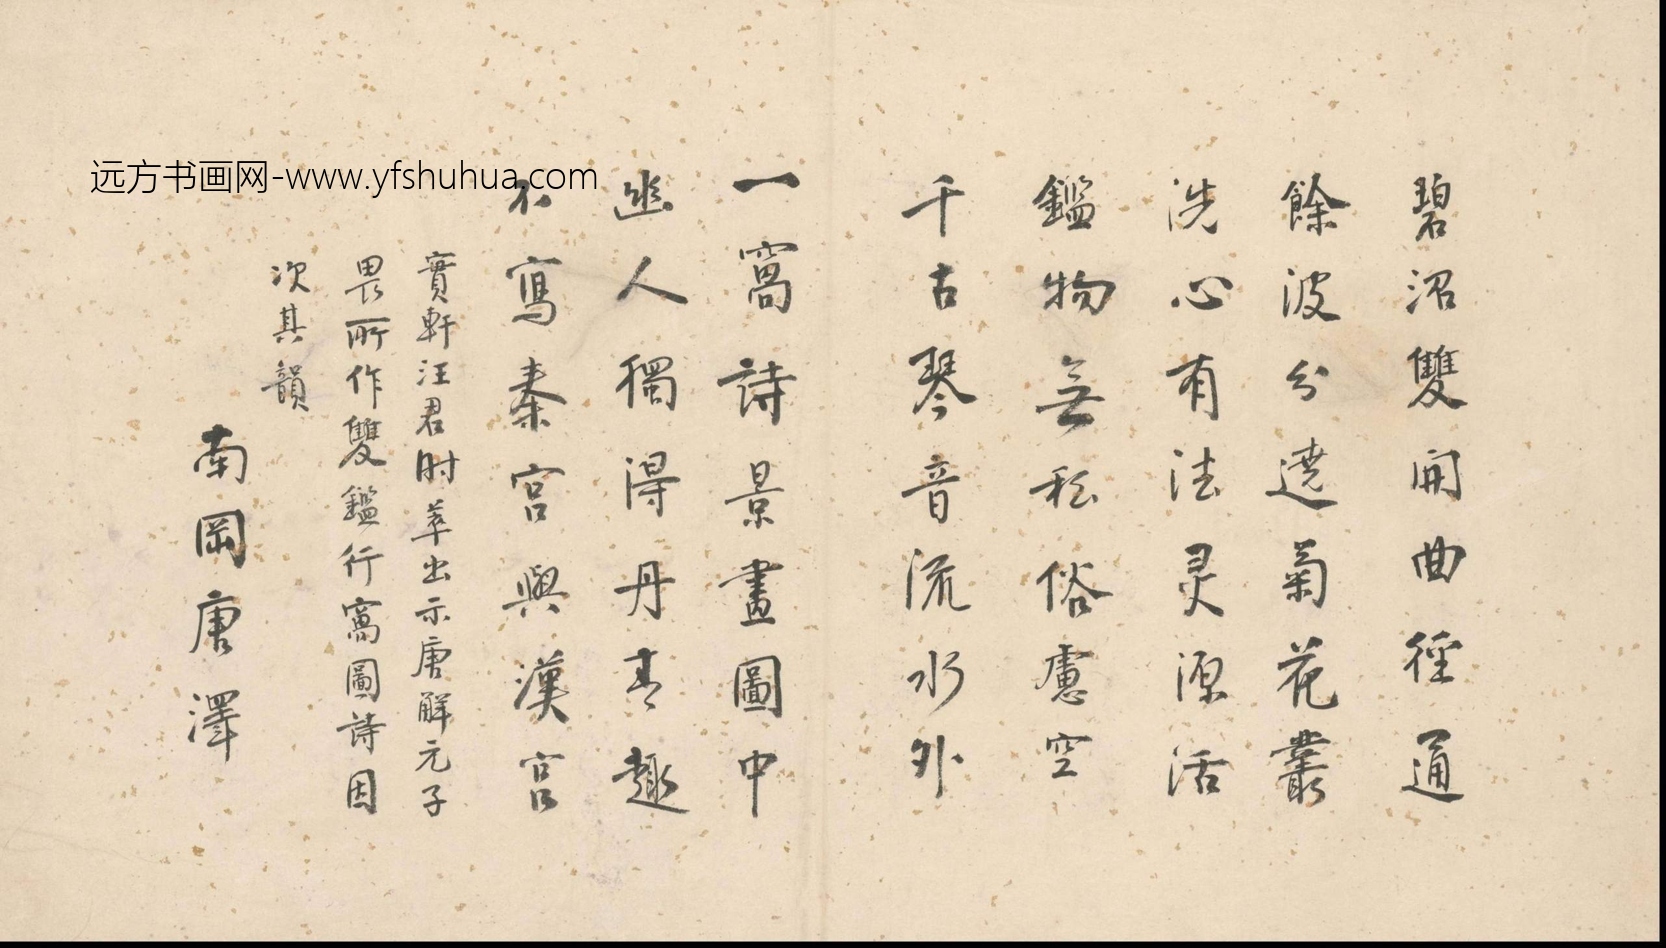 碧沼雙開曲徑通
餘波分遶菊花叢
洗心有法灵源活
鑑物無私俗慮空
千古琴音流水外
一窩詩景畫圖中
幽人獨得丹青趣
不寫秦宮與漢宮
實軒汪君時萃出示唐解元子
畏所作雙鑑行窩圖詩因
次其韻
南岡唐澤
远方书画网-www.yfshuhua.com